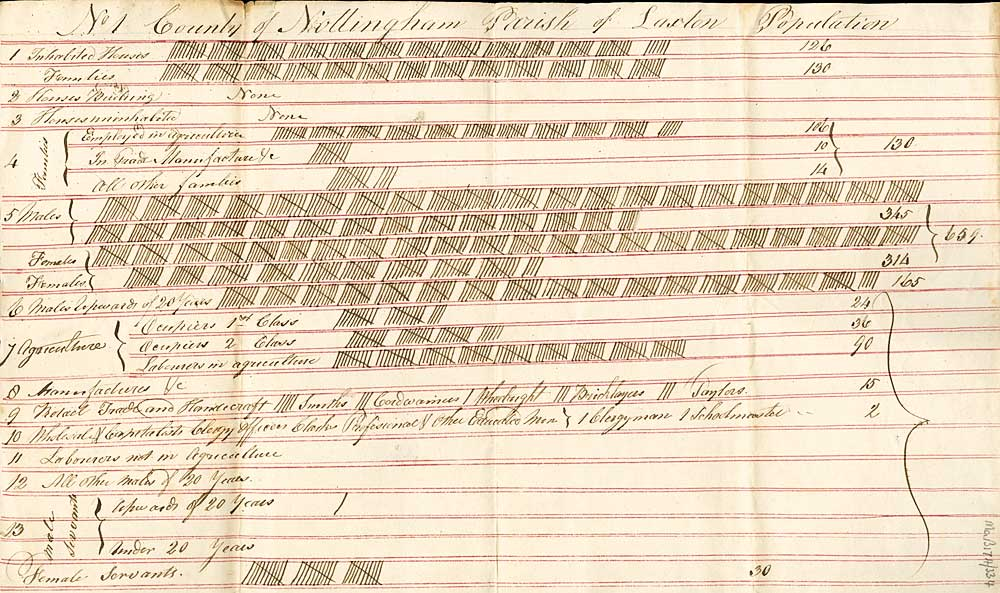 No 1 County of Nottingham Parish of Laxton Population
1 Inhabited Houses 126
Families 130
2 Houses Building None
3 Houses uninhabited None
4 Families
Employed in agriculture 106
In Trade Manufacture &c 10 130
All other families 14
5 Males 345
659.
Females 314
Females
6 Males Upwards of 20 Years 165
7 Agriculture
Ocupiers 1st Class 24
Ocupiers 2 Class 36
Labourers in agriculture 90
8 Manufactures &c
9 Retail Trade and Handicraft Smiths Cordwainers 1 Wheelright Bricklayers Taylors. 15
10 Wholesale & Capatalists Clergy Officers Clarks Profesional & Other Educated Men } 1 Clergyman 1 Scholmaster 2
11 Labourers not in Agriculture
12 All other males of 20 Years.
13 Male Servants
Upwards of 20 Years
Under 20 Years
Female Servants. 30
Ma/B174/334